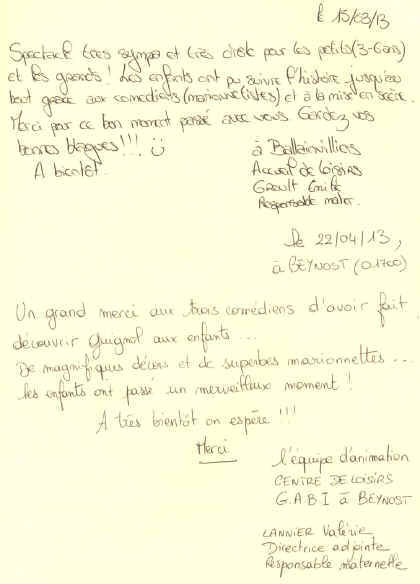 le 15/03/13
Spectacle très sympa et très drôle pour les petits (3-6ans)
et les grands ! Les enfants ont pu suivre l'histoire jusqu'au
bout grâce aux comédiens (marionnettistes) et à la mise en scène.
Merci pour ce bon moment passé avec vous. Gardez vos
bonnes blagues !!! ☺
A bientôt.
à Ballainvilliers
Accueil de Loisirs
Responsable mater.
le 22/04/13,
à BEYNOST (01700)
Un grand merci aux trois comédiens d'avoir fait
découvrir Guignol aux enfants...
De magnifiques décors et de superbes marionnettes...
les enfants ont passé un merveilleux moment !
A très bientôt on espère !!!
Merci
l'équipe d'animation
CENTRE DE LOISIRS
G.A.B.I à BEYNOST
LANNIER Valérie
Directrice adjointe
Responsable maternelle